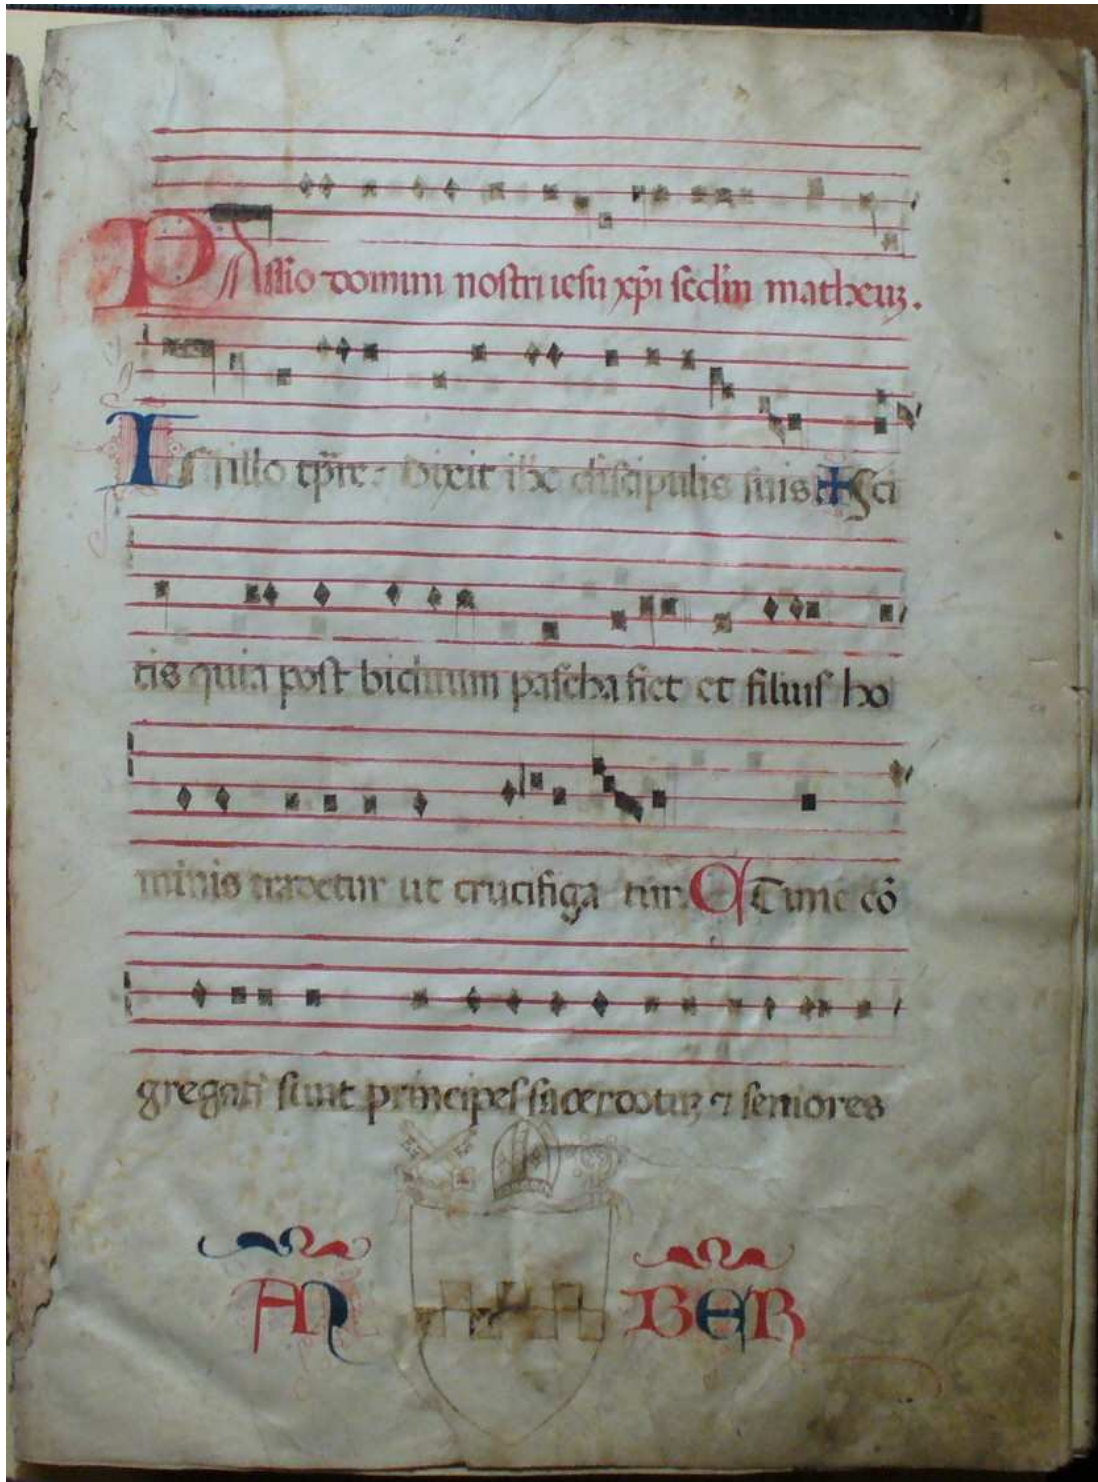 PAssio domini nostri iesu xp̄i scd̄m matheuꝫ.
In illo tp̄re. Dixit ihc discipulis suis ✠ Sci
tis quia post biduum pascha fiet et filius ho
minis tradetur ut crucifiga tur. Tunc cō
gregati sunt principes sacerdotuꝫ ⁊ seniores
AN BER